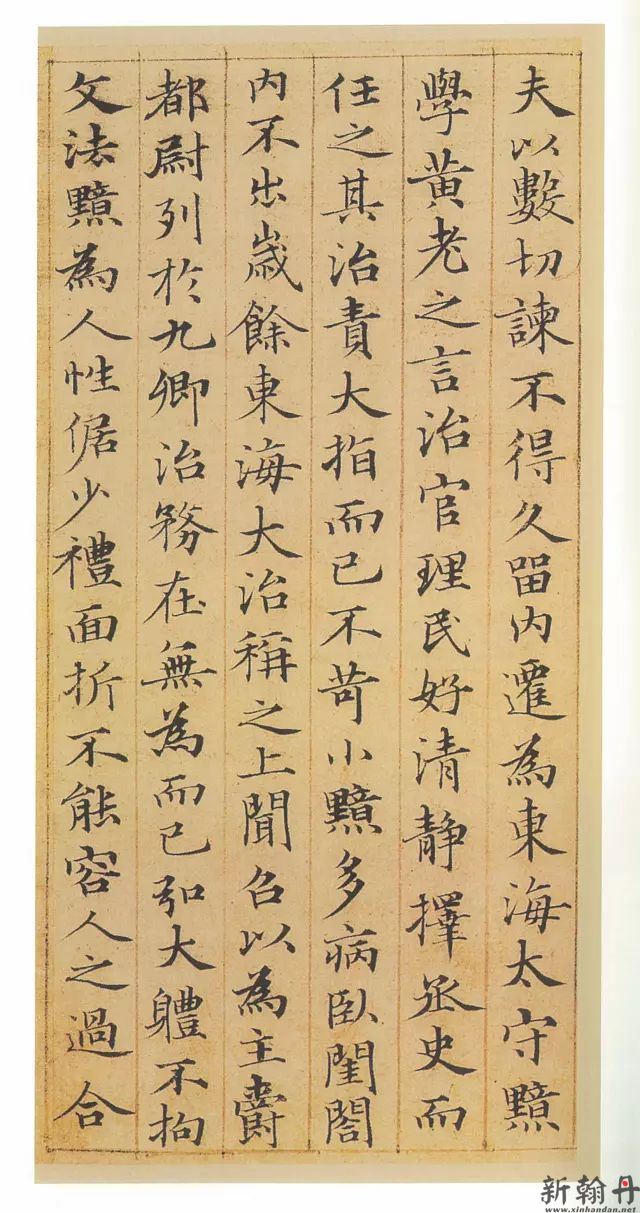 夫以數切諫不得久留內遷為東海太守黯
學黃老之言治官理民好清靜擇丞史而
任之其治責大指而已不苛小黯多病臥閨閤
內不出歲餘東海大治稱之上聞召以為主爵
都尉列於九卿治務在無為而已引大體不拘
文法黯為人性倨少禮面折不能容人之過合
新翰丹
www.xinhandan.net